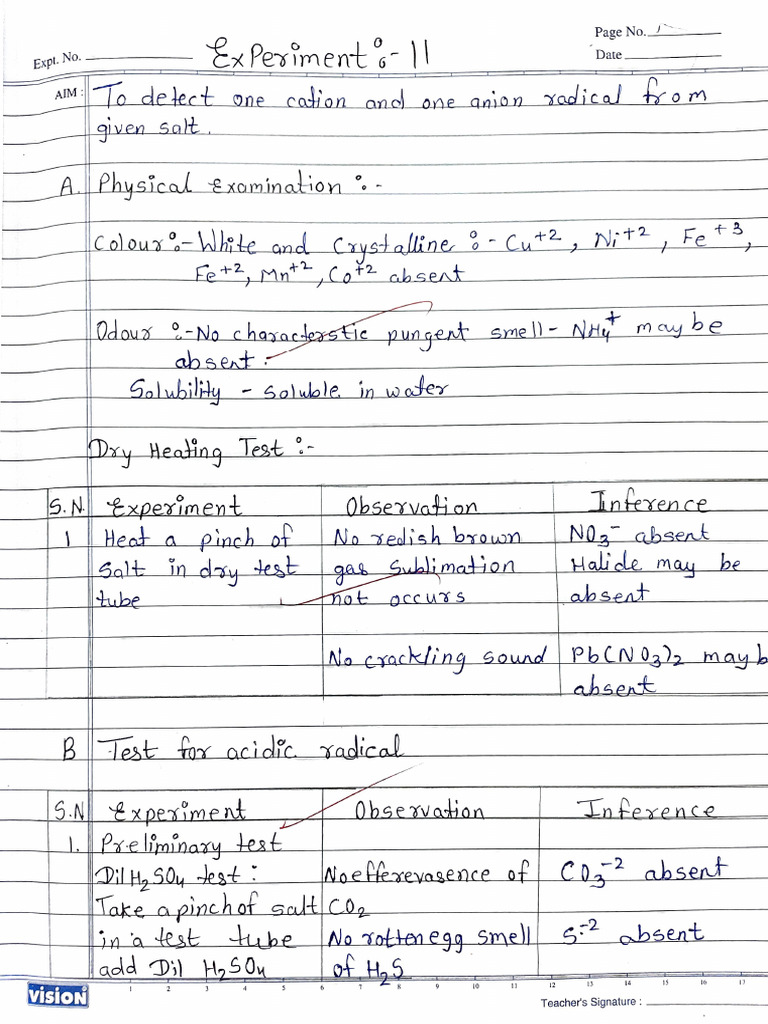 Expt. No.
Experiment :- 11
Page No. 1
Date
AIM : To detect one cation and one anion radical from
given salt.
A. Physical Examination :-
Colour :- White and Crystalline :- Cu+2, Ni+2, Fe+3,
Fe+2, Mn+2, Co+2 absent
Odour :- No characterstic pungent smell - NH4+ may be
absent.
Solubility - soluble in water
Dry Heating Test :-
S.N. Experiment Observation Inference
1 Heat a pinch of No redish brown NO3- absent
Salt in dry test gas Sublimation Halide may be
tube not occurs absent
No crackling sound Pb(NO3)2 may b
absent
B Test for acidic radical
S.N Experiment Observation Inference
1. Preliminary test
Dil H2SO4 test : No efferevasence of CO3-2 absent
Take a pinch of salt CO2
in a test tube No rotten egg smell S-2 absent
add Dil H2SO4 of H2S
VISION
1 2 3 4 5 6 7 8 9 10 11 12 13 14 15 16 17
Teacher's Signature :